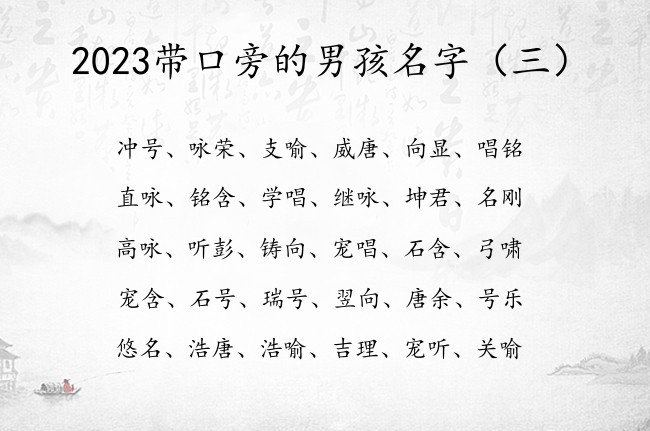 2023带口旁的男孩名字（三）
冲号、咏荣、支喻、威唐、向显、唱铭
直咏、铭含、学唱、继咏、坤君、名刚
高咏、听彭、铸向、宠唱、石含、弓啸
宠含、石号、瑞号、翌向、唐余、号乐
悠名、浩唐、浩喻、吉理、宠听、关喻